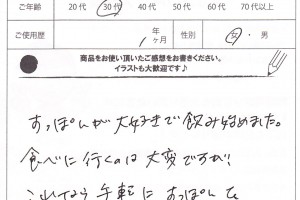 ご年齢 20代 30代 40代 50代 60代 70代以上
ご使用歴 1年 ヶ月 性別 女・男
商品をお使い頂いたご感想をお書きください。
イラストも大歓迎です♪
すっぽんが大好きで飲み始めました。
食べに行くのは大変ですが、
これなら手軽にすっぽんを